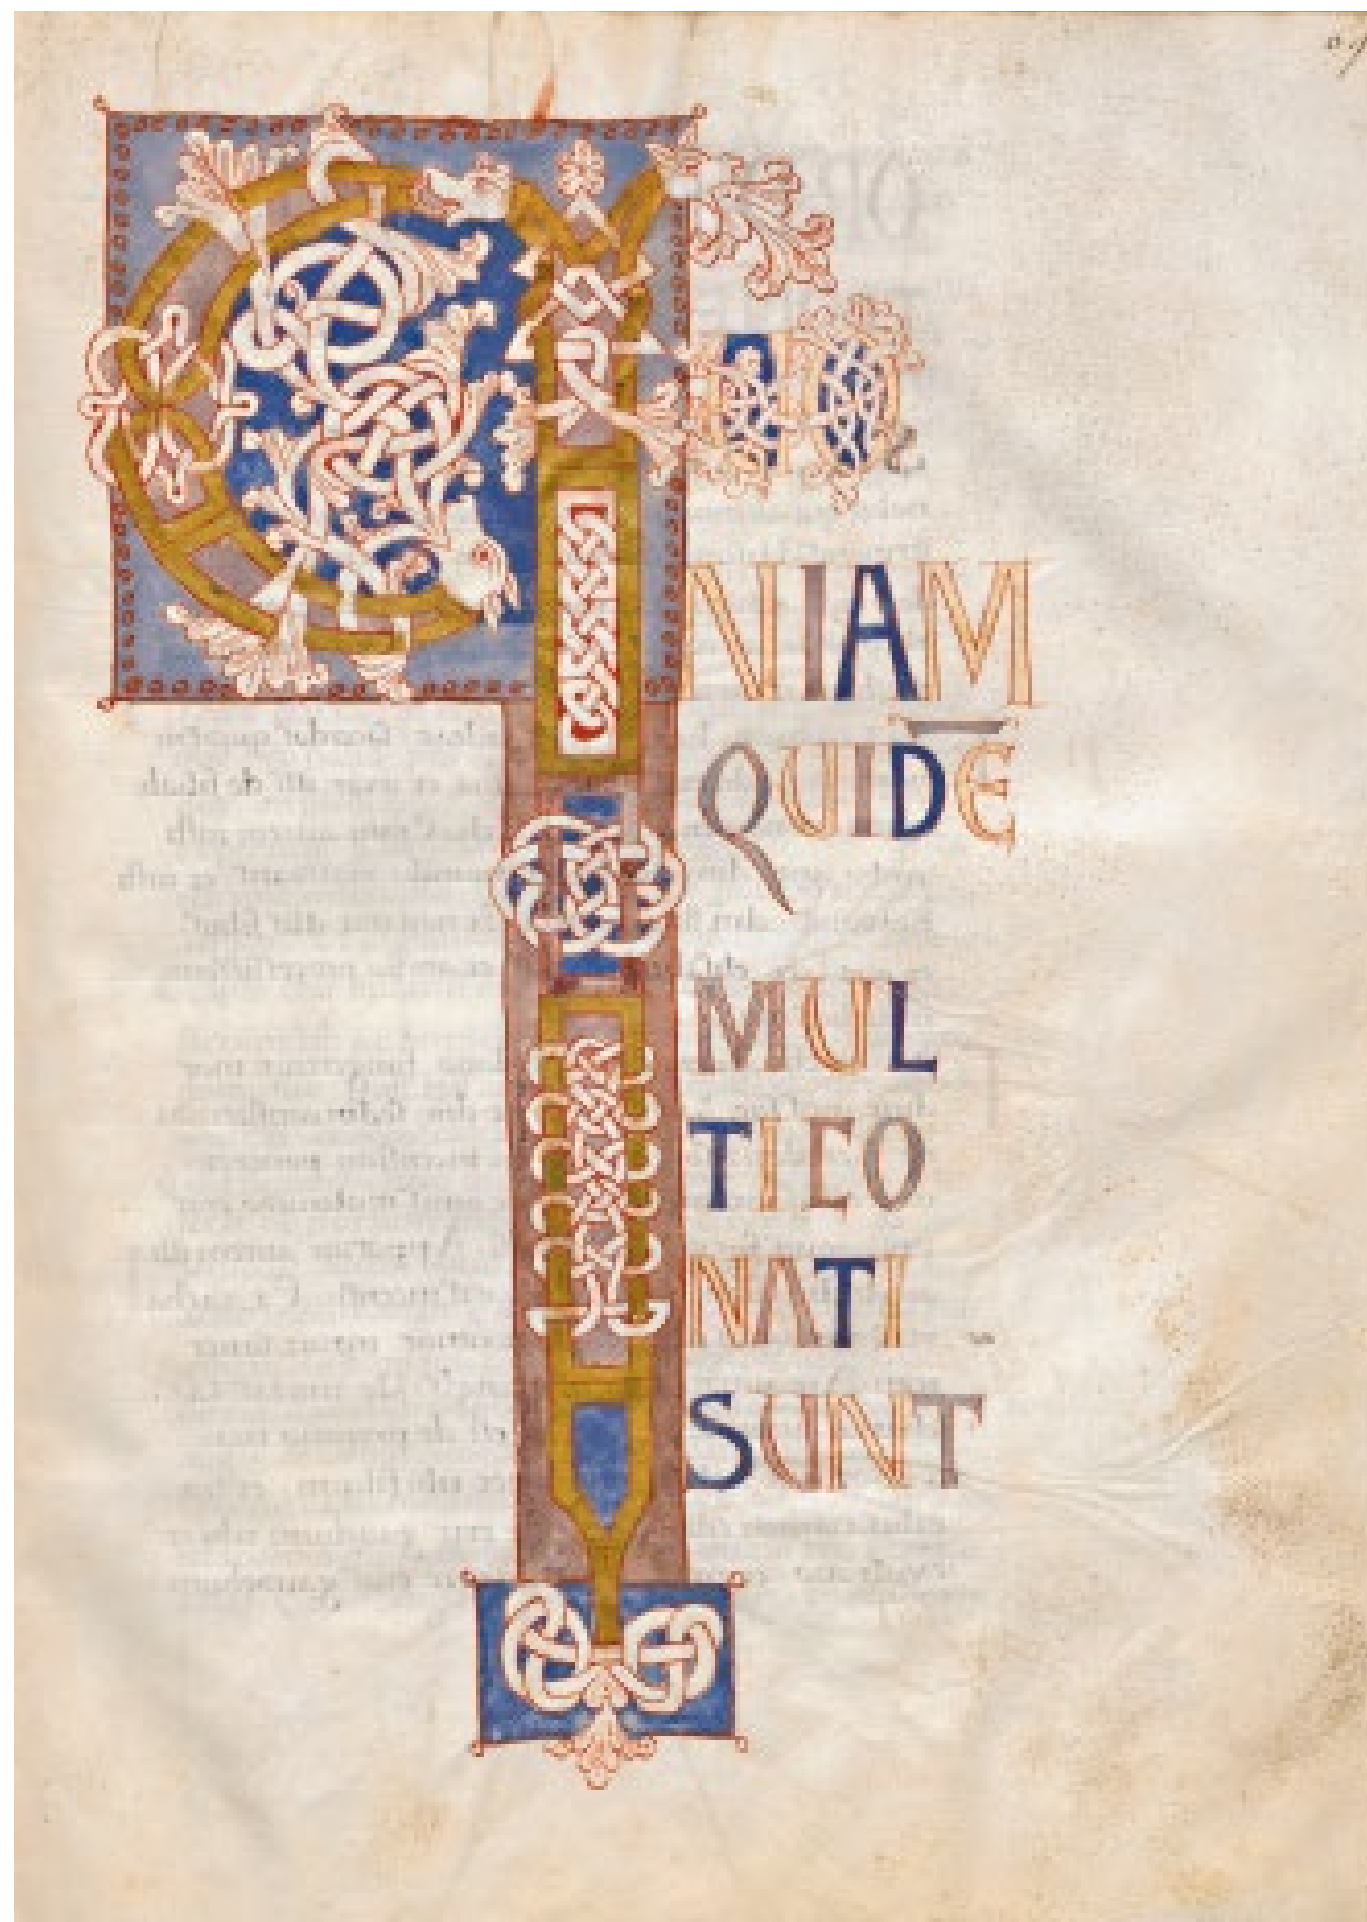 QUO
NIAM
QUIDĒ
MUL
TICO
NATI
SUNT